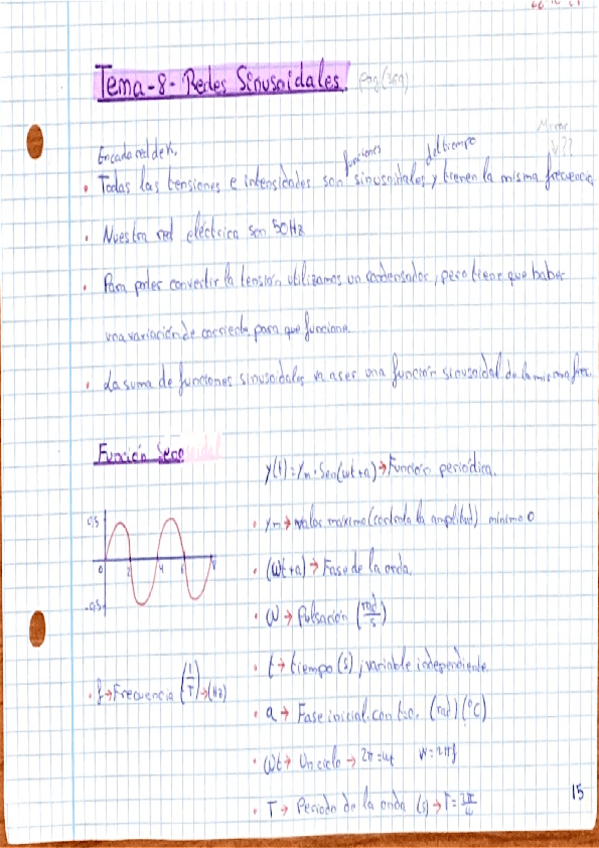 Tema-8- Redes Sinusoidales.
funciones del tiempo
• Todas las tensiones e intensidades son sinusoidales y tienen la misma frecuencia
• Nuestra red eléctrica son 50Hz
• Para poder convertir la tensión utilizamos un condensador, pero tiene que haber
una variación de corriente para que funcione.
• La suma de funciones sinusoidales va a ser una función sinusoidal de la misma fre.
Función Seno
y(t)=Ym·Sen(wt+a)→Función periódica.
0,5
0 2 4 6 8
-0,5
• Ym→valor maximo (controla la amplitud) minimo 0
• (Wt+a)→Fase de la onda.
• W→Pulsación (rad/s)
• t→tiempo (s), variable independiente
• f→Frecuencia (1/T)→(Hz)
• a→Fase inicial. con t=0. (rad) (ºC)
• Wt→Un ciclo→2π=wt W=2πf
• T→Periodo de la onda (s)→T=2π/w
15